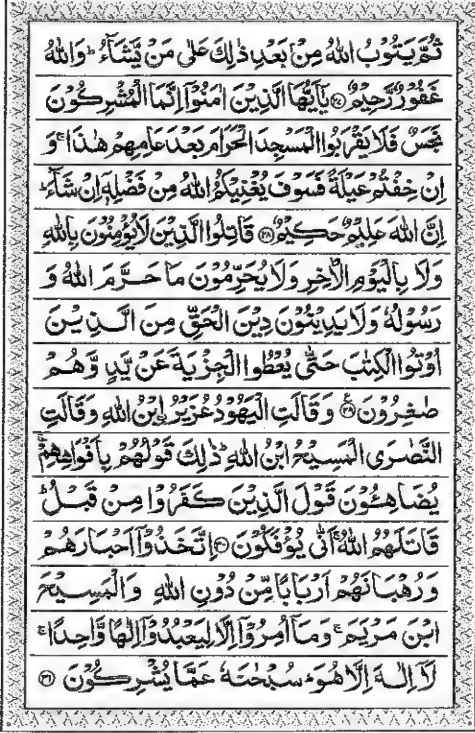 ثُمَّ يَتُوْبُ اللّٰهُ مِنْۢ بَعْدِ ذٰلِكَ عَلٰى مَنْ يَّشَآءُ ؕ وَاللّٰهُ
غَفُوْرٌ رَّحِيْمٌ ﴿۲۷﴾ يٰۤاَيُّهَا الَّذِيْنَ اٰمَنُوْۤا اِنَّمَا الْمُشْرِكُوْنَ
نَجَسٌ فَلَا يَقْرَبُوا الْمَسْجِدَ الْحَرَامَ بَعْدَ عَامِهِمْ هٰذَا ۚ وَ
اِنْ خِفْتُمْ عَيْلَةً فَسَوْفَ يُغْنِيْكُمُ اللّٰهُ مِنْ فَضْلِهٖۤ اِنْ شَآءَ ؕ
اِنَّ اللّٰهَ عَلِيْمٌ حَكِيْمٌ ﴿۲۸﴾ قَاتِلُوا الَّذِيْنَ لَا يُؤْمِنُوْنَ بِاللّٰهِ
وَلَا بِالْيَوْمِ الْاٰخِرِ وَلَا يُحَرِّمُوْنَ مَا حَرَّمَ اللّٰهُ وَ
رَسُوْلُهٗ وَلَا يَدِيْنُوْنَ دِيْنَ الْحَقِّ مِنَ الَّذِيْنَ
اُوْتُوا الْكِتٰبَ حَتّٰى يُعْطُوا الْجِزْيَةَ عَنْ يَّدٍ وَّهُمْ
صٰغِرُوْنَ ﴿۲۹﴾ وَقَالَتِ الْيَهُوْدُ عُزَيْرُ ۨابْنُ اللّٰهِ وَقَالَتِ
النَّصٰرَى الْمَسِيْحُ ابْنُ اللّٰهِ ؕ ذٰلِكَ قَوْلُهُمْ بِاَفْوَاهِهِمْ ۚ
يُضَاهِـُٔوْنَ قَوْلَ الَّذِيْنَ كَفَرُوْا مِنْ قَبْلُ ؕ
قَاتَلَهُمُ اللّٰهُ ۚ اَنّٰى يُؤْفَكُوْنَ ﴿۳۰﴾ اِتَّخَذُوْۤا اَحْبَارَهُمْ
وَرُهْبَانَهُمْ اَرْبَابًا مِّنْ دُوْنِ اللّٰهِ وَالْمَسِيْحَ
ابْنَ مَرْيَمَ ۚ وَمَاۤ اُمِرُوْۤا اِلَّا لِيَعْبُدُوْۤا اِلٰهًا وَّاحِدًا ۚ
لَاۤ اِلٰهَ اِلَّا هُوَ ؕ سُبْحٰنَهٗ عَمَّا يُشْرِكُوْنَ ﴿۳۱﴾